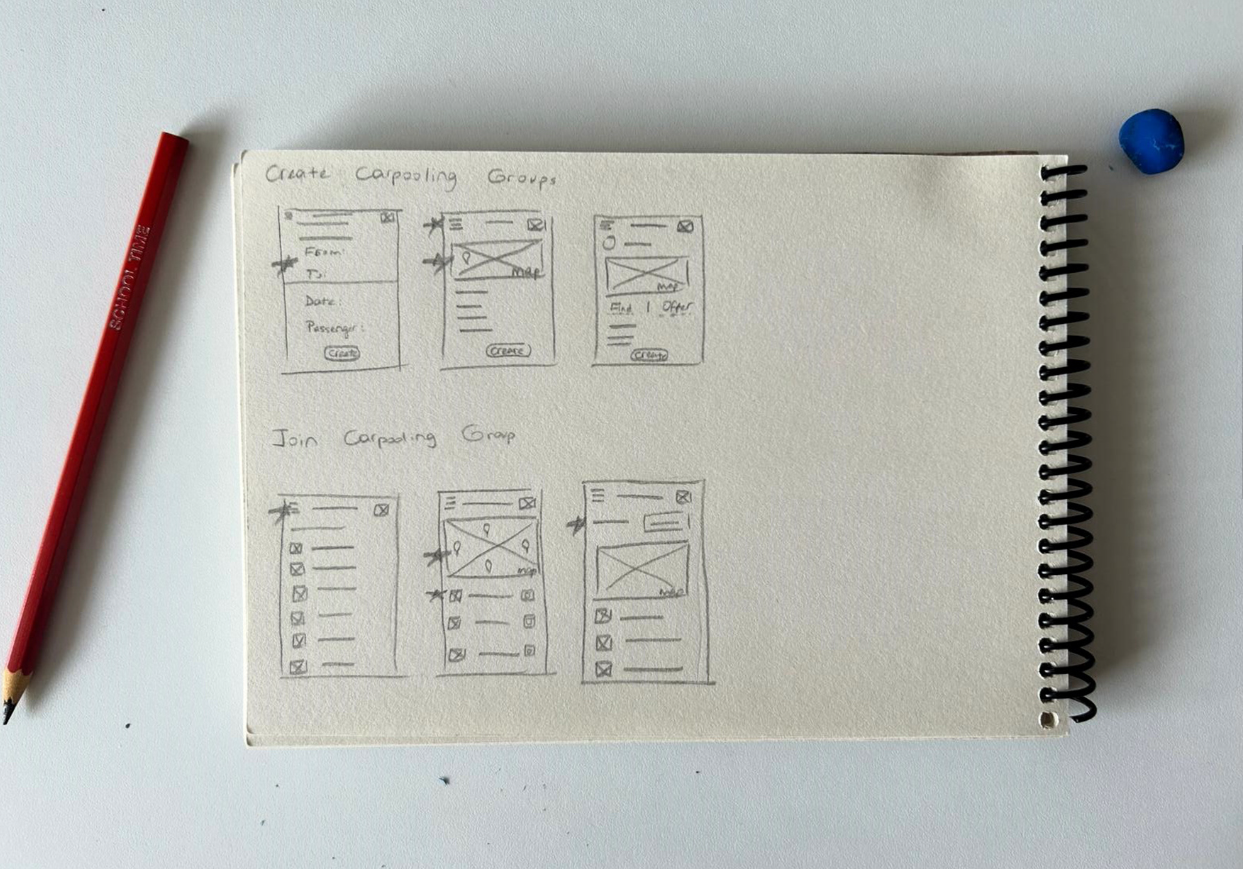 Create Carpooling Groups
From:
To:
Date:
Passenger:
Create
map
Create
map
Find | Offer
Create
Join Carpooling Group
map
map
SCHOOL TIME